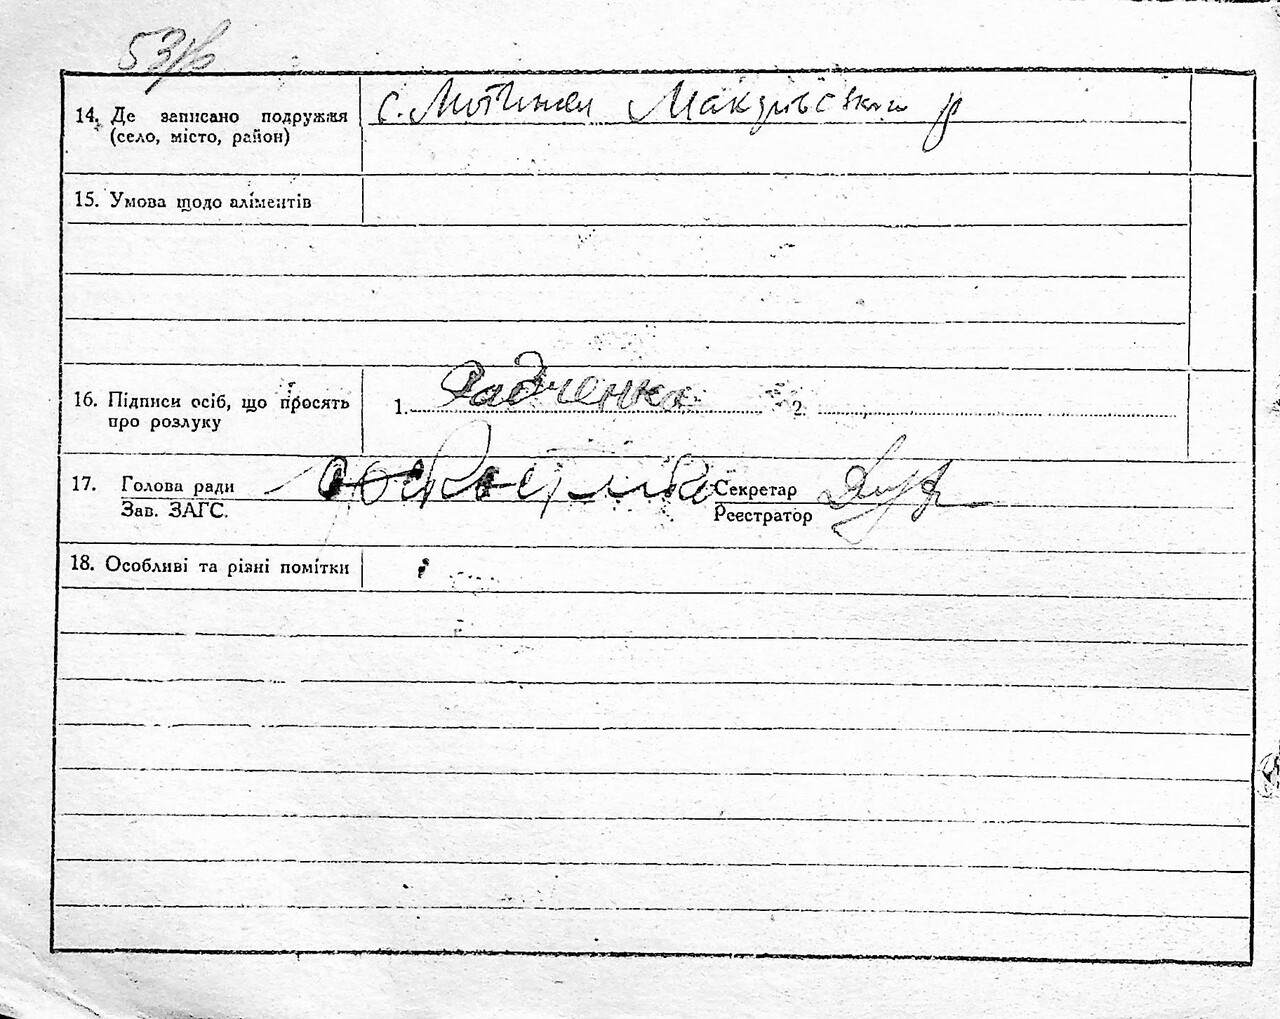 53
14. Де записано подружжя
(село, місто, район)
с. Мотижин Макарівського р
15. Умова щодо аліментів
16. Підписи осіб, що просять
про розлуку
1. Радченко 2.
17. Голова ради
Зав. ЗАГС.
Секретар
Реєстратор
18. Особливі та різні помітки